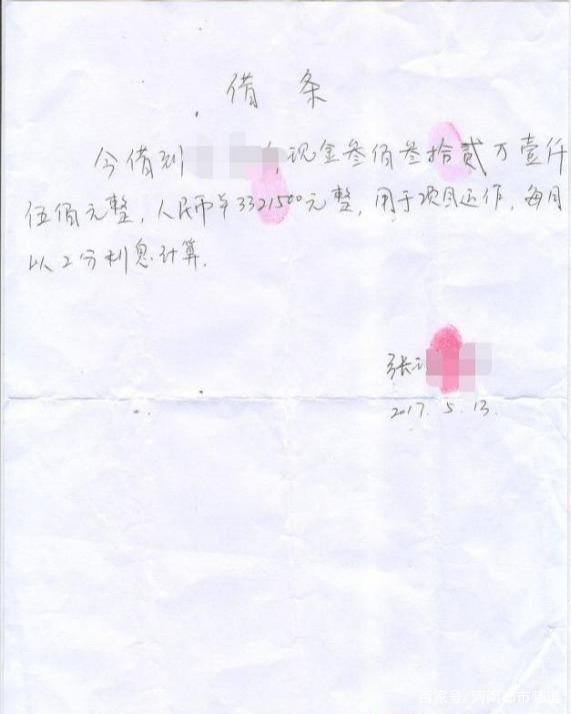 借条
今借到 现金叁佰叁拾贰万壹仟
伍佰元整，人民币￥3321500元整，用于项目运作，每月
以2分利息计算.
张
2017.5.13.
百家号/河南都市频道